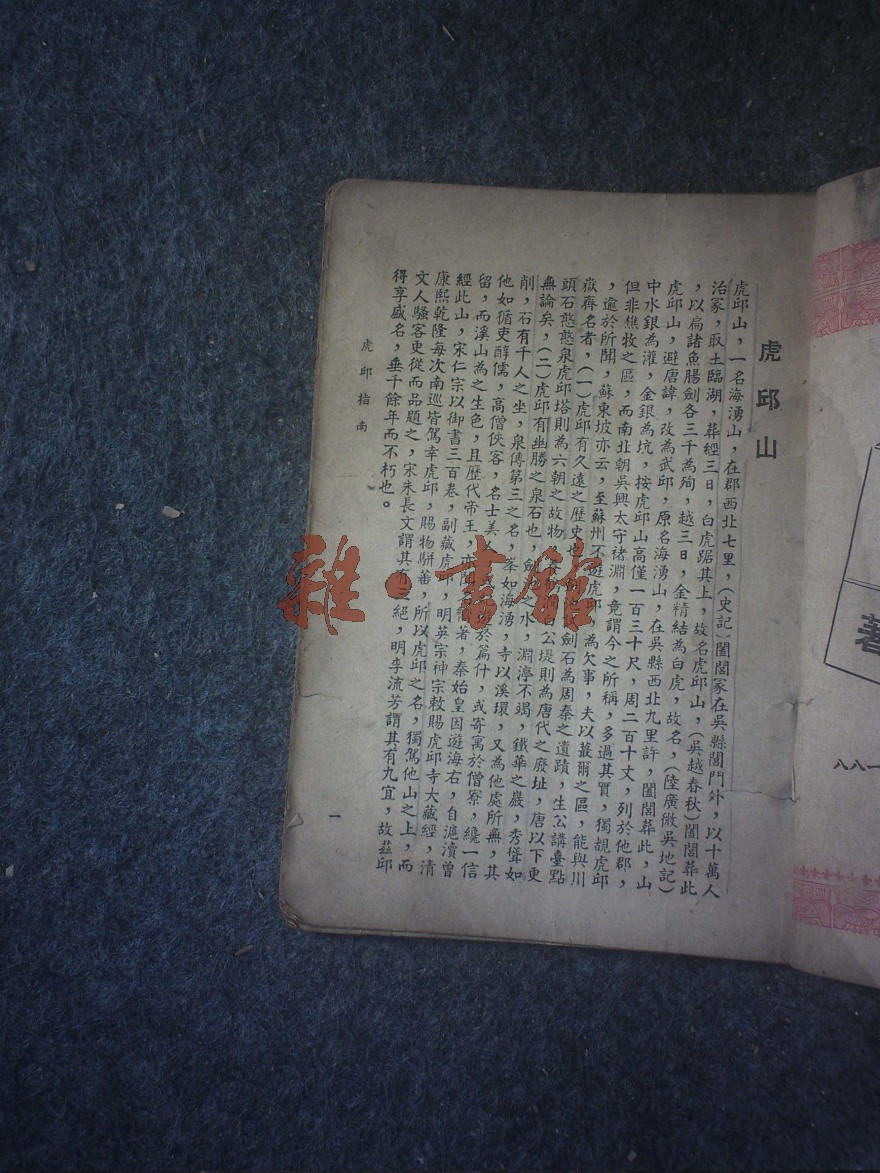 虎邱山
虎邱山，一名海湧山，在郡西北七里，（史記）闔閭冢在吳縣閶門外，以十萬人
治冢，取土臨湖，葬經三日，白虎踞其上，故名虎邱山，（吳越春秋）闔閭葬此
，以扁諸魚腸劍各三千為殉，越三日，金精結為白虎，故名，（陸廣微吳地記）
虎邱山，避唐諱，改為武邱，原名海湧山，在吳縣西北九里許，闔閭葬此，山
中水銀為灌，金銀為坑，按虎邱山高僅一百三十尺，周二百十丈，列於他郡，
但非樵牧之區，而南北朝吳興太守褚淵，竟謂今之所稱，多過其實，獨覩虎邱
，逾於所聞，蘇東坡亦云，至蘇州不遊虎邱，為欠事，夫以蕞爾之區，能與川
嶽齊名者，（一）虎邱有久遠之歷史也，劍池試劍石為周秦之遺蹟，生公講臺點
頭石憨憨泉虎邱塔則為六朝之故物，白公堤則為唐代之廢址，唐以下更
無論矣，（二）虎邱有幽勝之泉石也，劍池之水，淵渟不竭，鐵華之巖，秀聳如
削，石有千人之坐，泉傳第三之名，峯如海湧，寺以溪環，又為他處所無，其
他如循吏醇儒，高僧俠客，名士美人，或於篇什，或寄寓於僧寮，纔一信
留，而溪山為之生色，且歷代帝王，亦著，秦始皇因遊海右，自滬瀆曾
經此山，宋仁宗以御書三百卷，副藏虎邱，明英宗神宗敕賜虎邱寺大藏經，清
康熙乾隆每次南巡皆駕幸虎邱，賜物駢蕃，所以虎邱之名，獨駕他山之上，而
文人騷客更從而品題之，宋朱長文謂其有三絕，明李流芳謂其有九宜，故茲邱
得享盛名，垂千餘年而不朽也。
虎邱指南
一
雜·書館
著
八八一